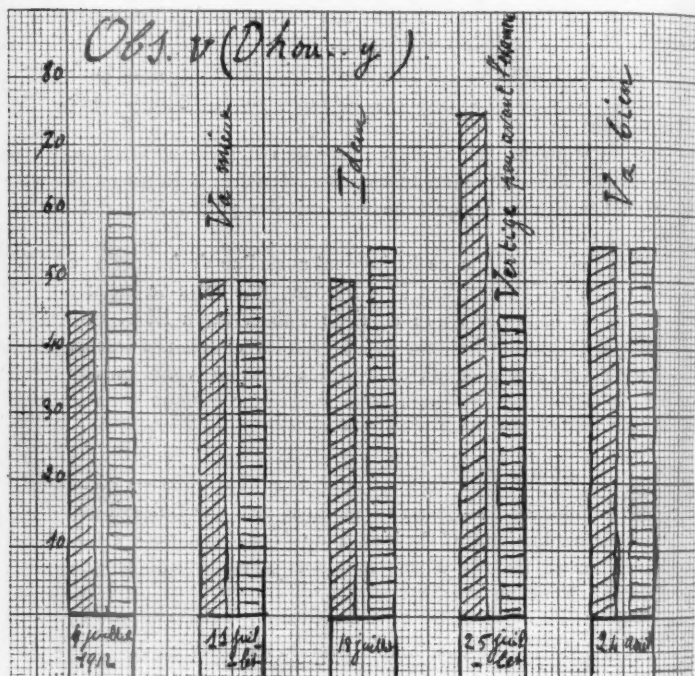 Obs. V (Dhou..y).
80
70
60
50
40
30
20
10
Va mieux
Idem
Vertige peu avant l'examen
Va bien
4 juillet
1912
11 juil
-let
18 juillet
25 juil
-let
24 aout